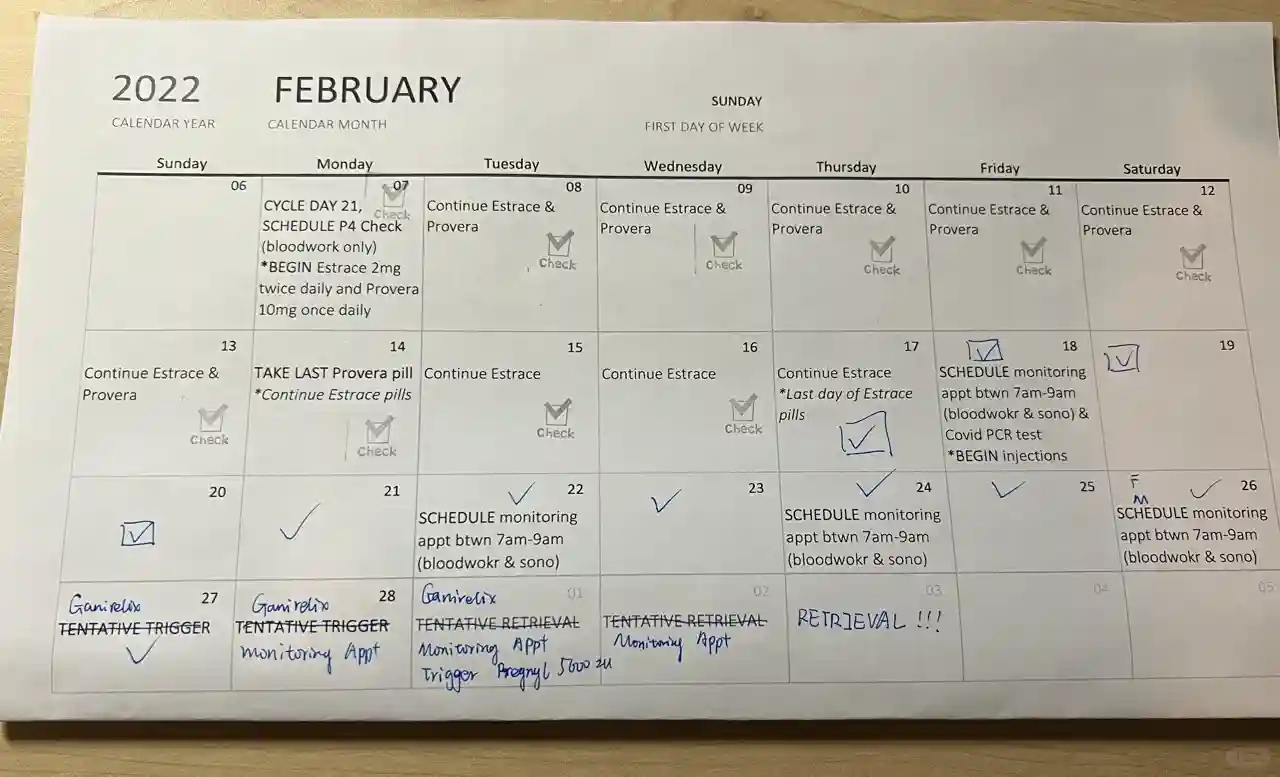 2022 FEBRUARY
SUNDAY
CALENDAR YEAR CALENDAR MONTH FIRST DAY OF WEEK
Sunday Monday Tuesday Wednesday Thursday Friday Saturday
06
07
CYCLE DAY 21,
Check
SCHEDULE P4 Check
(bloodwork only)
*BEGIN Estrace 2mg
twice daily and Provera
10mg once daily
08
Continue Estrace &
Provera
Check
09
Continue Estrace &
Provera
Check
10
Continue Estrace &
Provera
Check
11
Continue Estrace &
Provera
Check
12
Continue Estrace &
Provera
Check
13
Continue Estrace &
Provera
Check
14
TAKE LAST Provera pill
*Continue Estrace pills
Check
15
Continue Estrace
Check
16
Continue Estrace
Check
17
Continue Estrace
*Last day of Estrace
pills
18
SCHEDULE monitoring
appt btwn 7am-9am
(bloodwokr & sono) &
Covid PCR test
*BEGIN injections
19
20
21
22
SCHEDULE monitoring
appt btwn 7am-9am
(bloodwokr & sono)
23
24
SCHEDULE monitoring
appt btwn 7am-9am
(bloodwokr & sono)
25
F
M
26
SCHEDULE monitoring
appt btwn 7am-9am
(bloodwokr & sono)
27
Ganirelix
TENTATIVE TRIGGER
28
Ganirelix
TENTATIVE TRIGGER
monitoring Appt
01
Ganirelix
TENTATIVE RETRIEVAL
Monitoring Appt
Trigger Pregnyl 5000 iu
02
TENTATIVE RETRIEVAL
Monitoring Appt
03
RETRIEVAL !!!
04
05